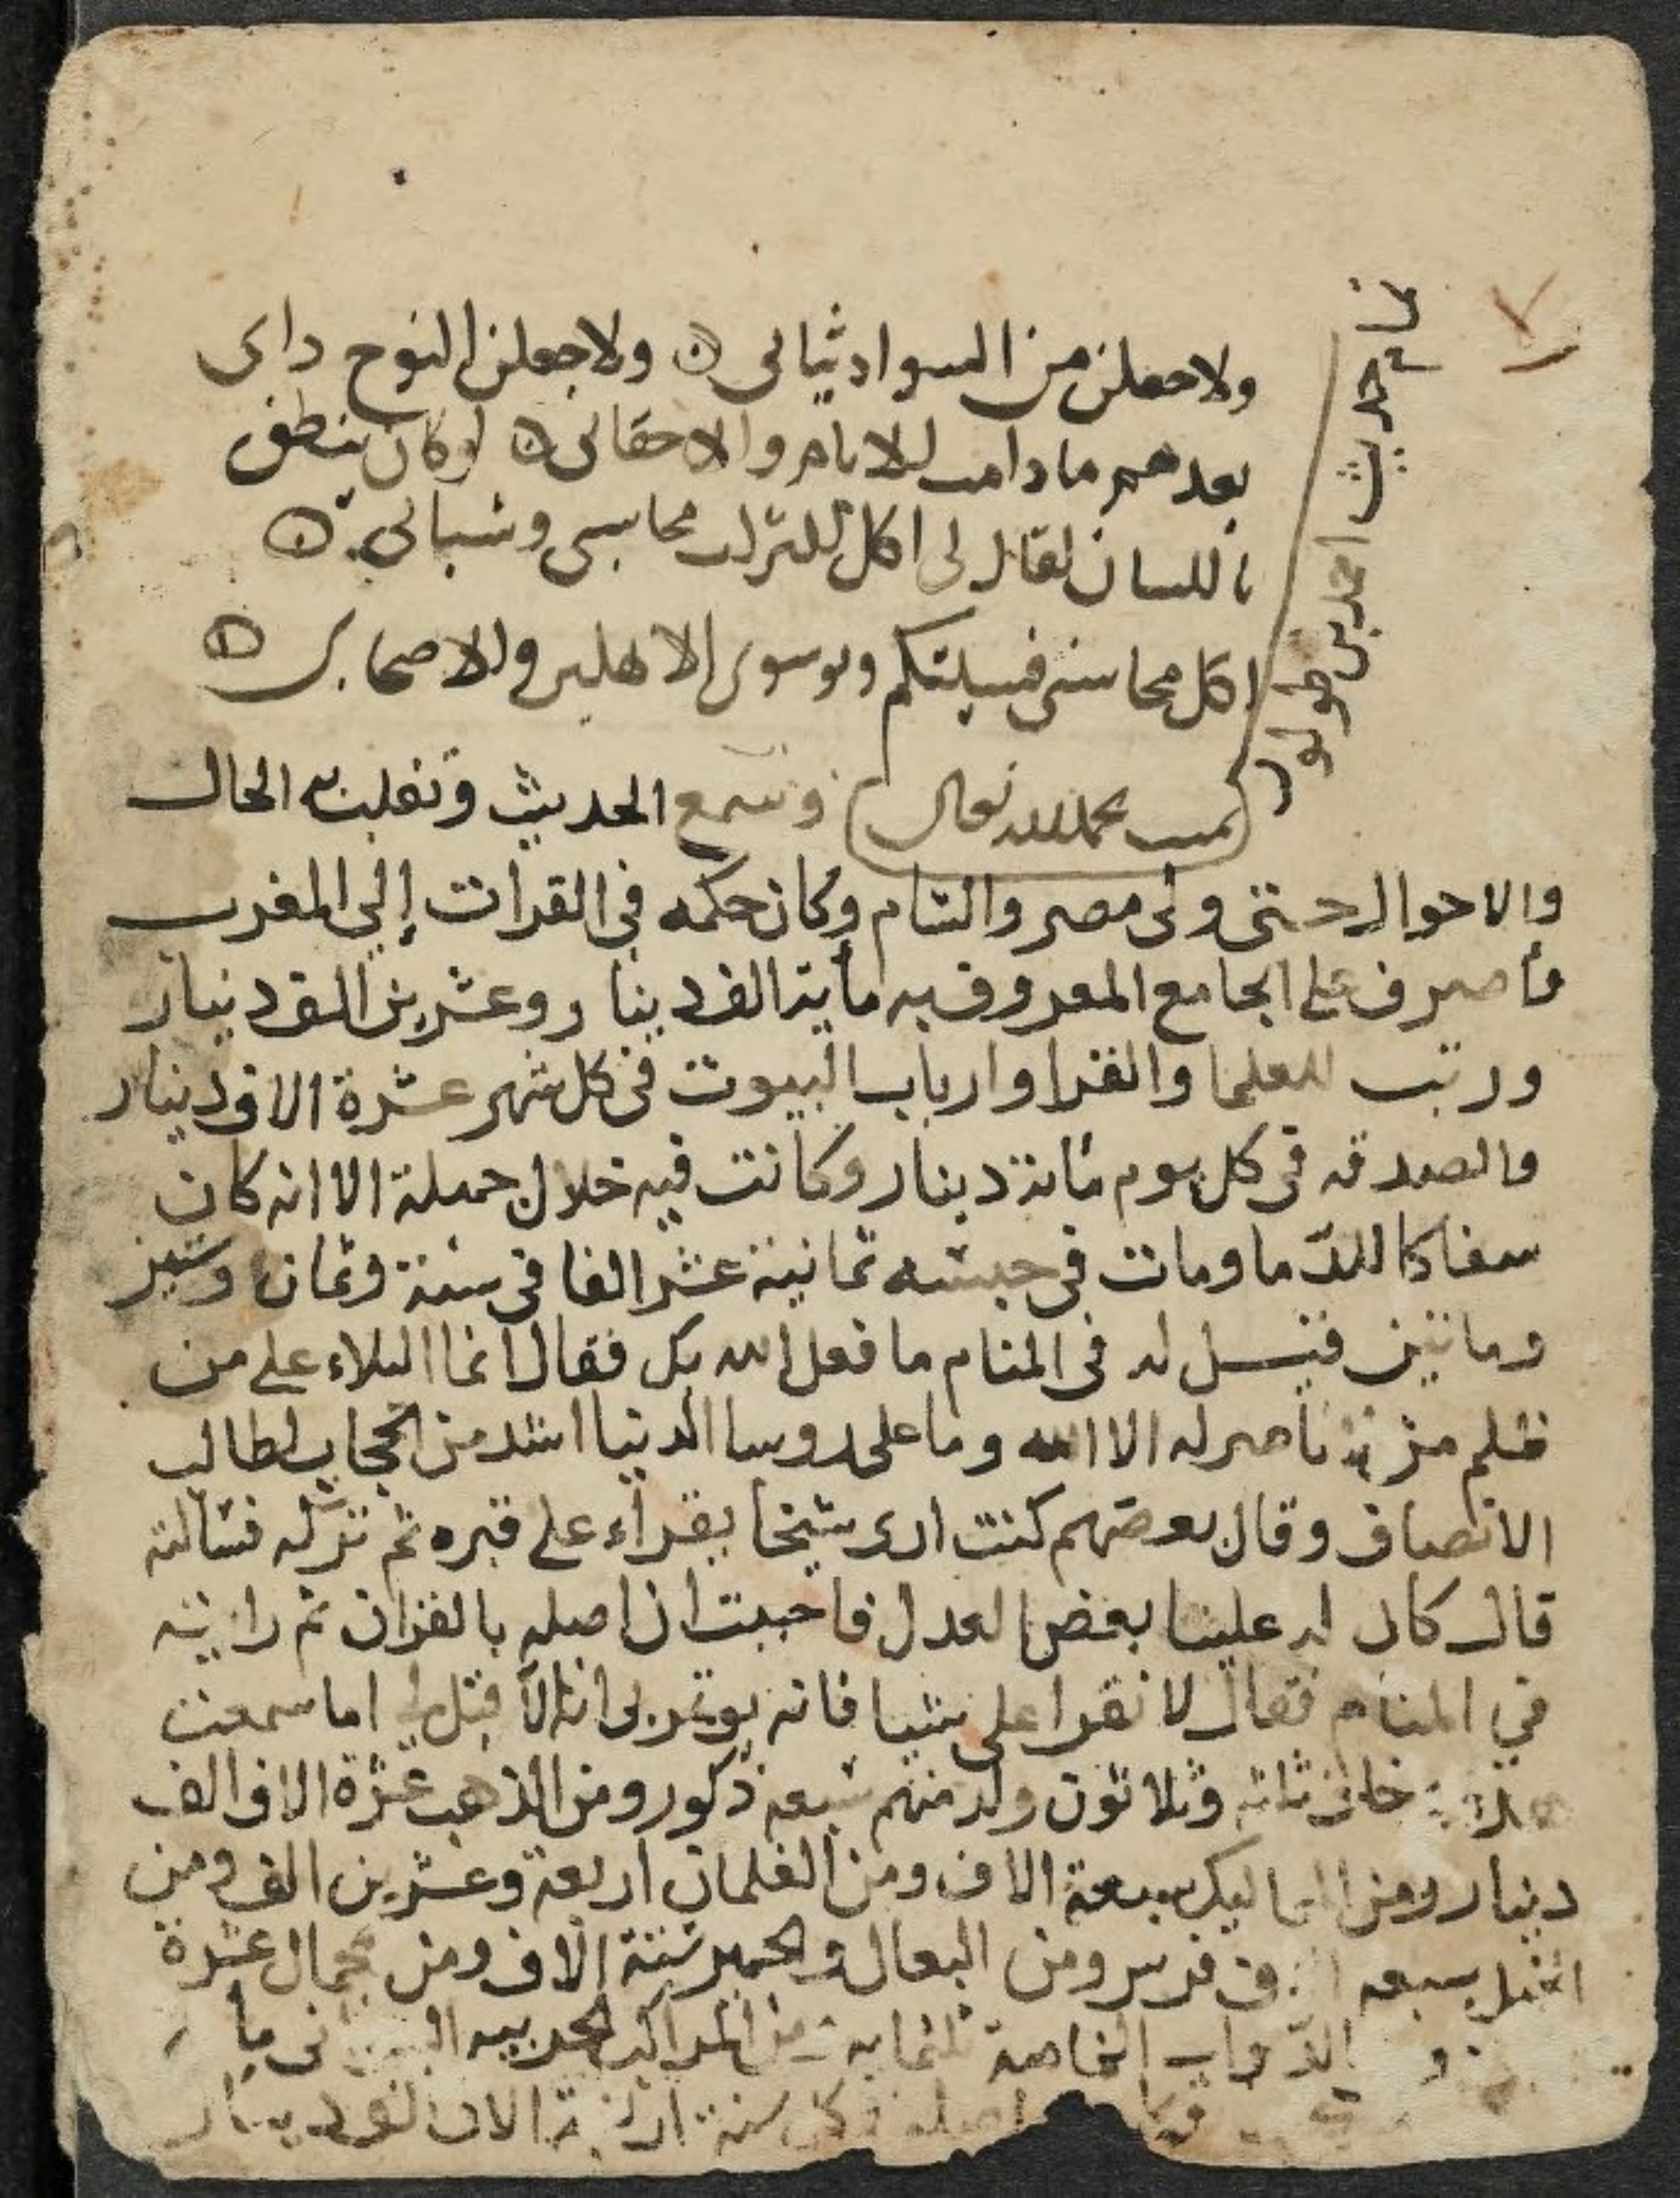 تابع حديث احمد بن طولون
ولاجعلن من السواد ثيابى ۞ ولاجعلن النوح دابى
بعدهم ما دامت للايام والاحقاب ۞ لو كان ينطق
باللسان لقال لى اكل التراب محاسنى وشبابى ۞
اكل محاسنى فنسيتكم وسوى الاهلين والاصحاب ۞
تمت بحمد الله تعالى
وسمع الحديث وتقلبت به الحال
والاحوال حتى ولى مصر والشام وكان حكمه فى الفرات إلى المغرب
فاصرف على الجامع المعروف به ماية الف دينار وعشرين الف دينار
ورتب للعلما والفقرا وارباب البيوت فى كل شهر عشرة الاف دينار
والصدقه فى كل يوم مائة دينار وكانت فيه خلال جميلة الا انه كان
سفاكا للدما ومات فى حبسه ثمانية عشر الفا فى سنة وثمان وستين
وماتين فقيل له فى المنام ما فعل الله بك فقال انما البلاء على من
ظلم من لا ناصر له الا الله وما على روسا الدنيا اشد من الحجاب لطالب
الانصاف وقال بعضهم كنت ارى شيخا يقراء على قبره ثم تركه فسالته
قال كان له علينا بعض العدل فاحببت ان اصله بالقران ثم رايته
في المنام فقال لا تقرا على شيا فانه يوتمر بى اية الا قيل لى اما سمعت
هذه خلف ثلاثه وثلاثون ولد منهم سبعه ذكور ومن الذهب عشرة الاف الف
دينار ومن المماليك سبعة الاف ومن الغلمان اربعة وعشرين الف ومن
الخيل سبعه الاف فرس ومن البغال والحمير ستة الاف ومن الجمال عشرة
و الدواب الخاصة ثلثمايه ومن المراكب الحربيه ماية
فى كل سنة اربعة الاف الف دينار